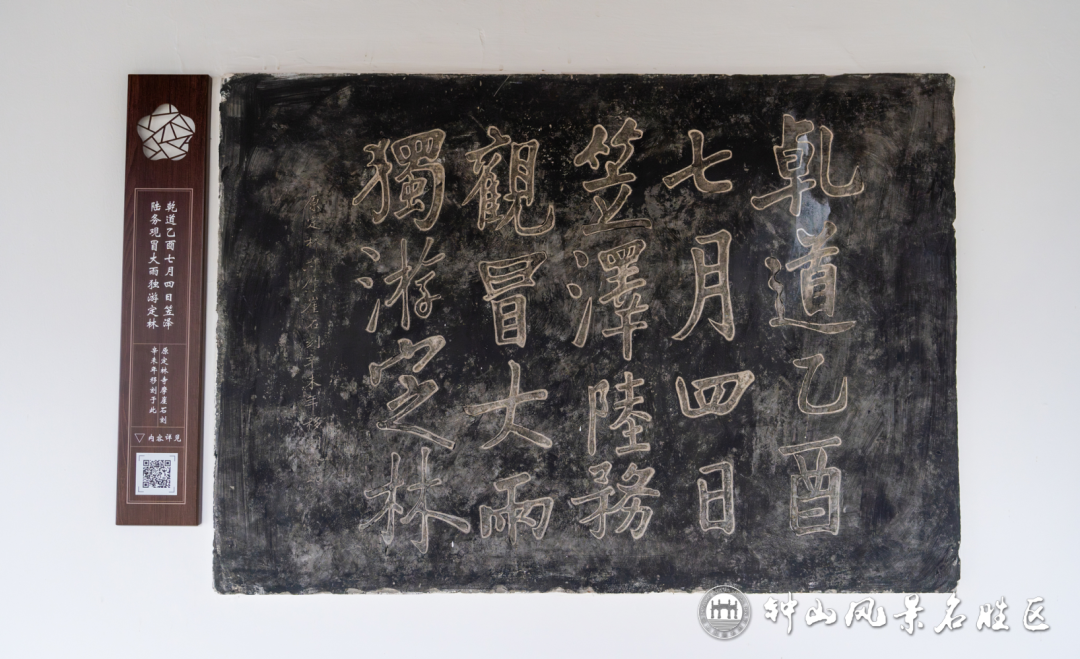 乹道乙酉
七月四日
笠澤陸務
觀冒大雨
獨游定林
乾道乙酉七月四日笠泽
陆务观冒大雨独游定林
原定林寺摩崖石刻
辛未年移刻于此
▽内容详见
钟山风景名胜区